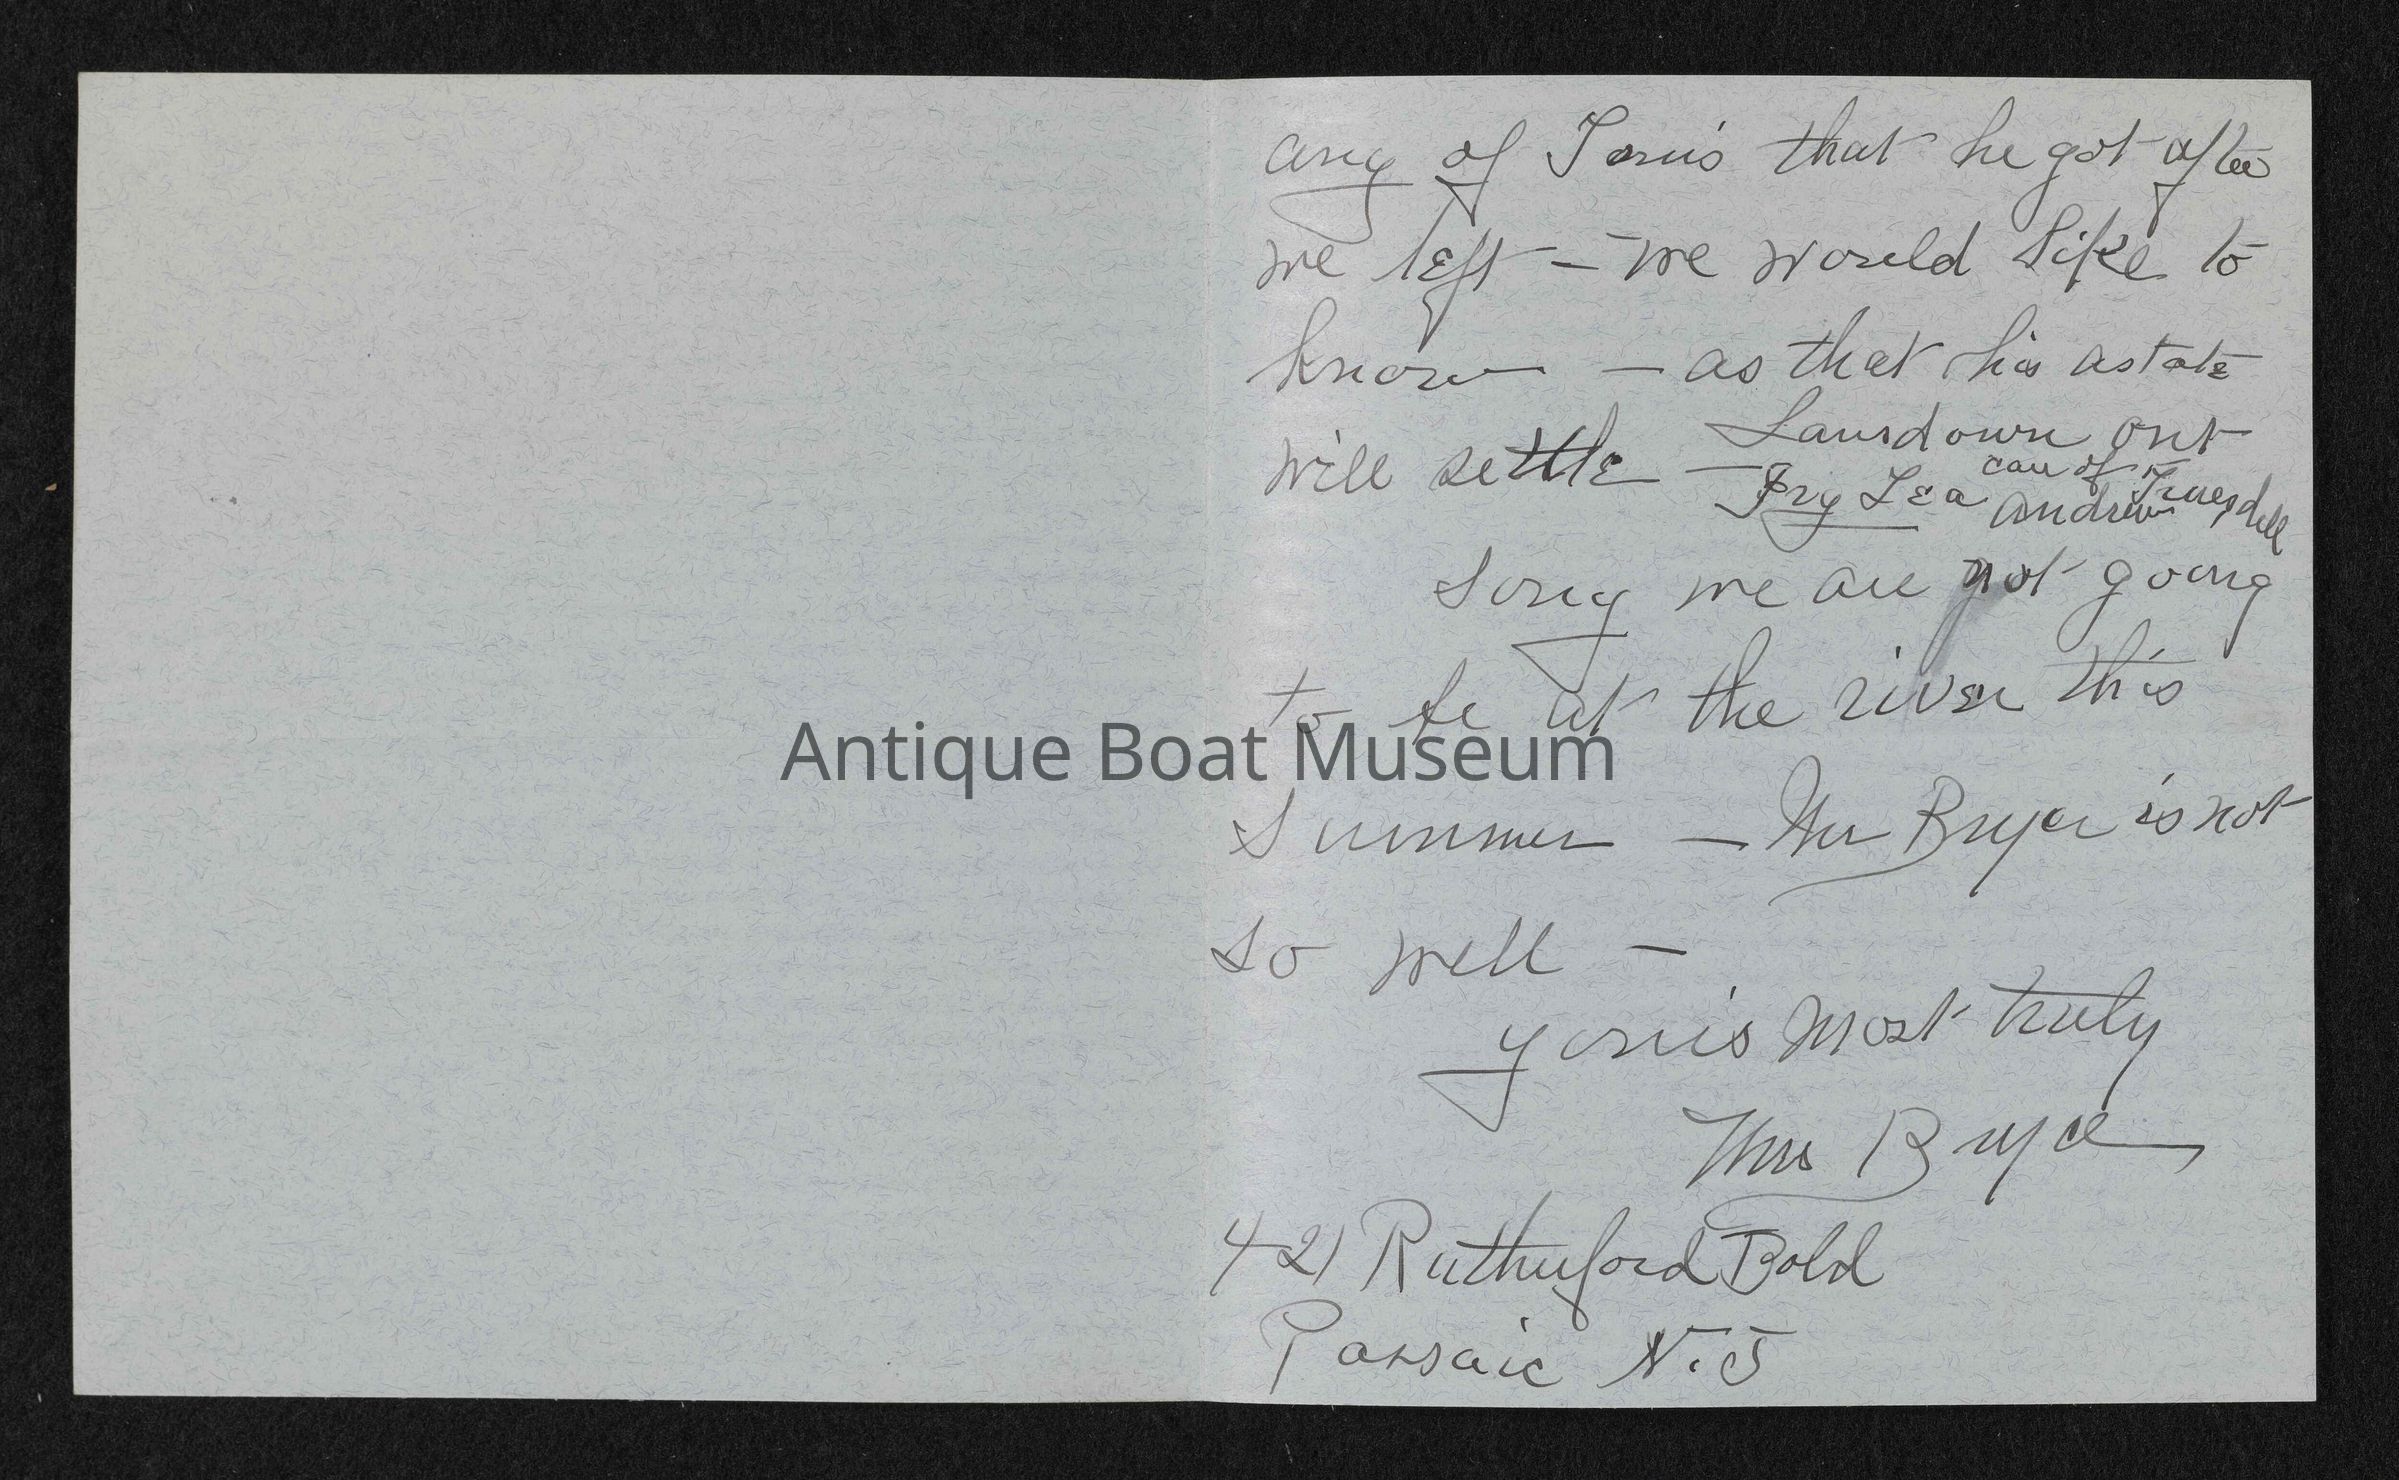 any of Tonis that he got after
we left — we would like to
know — as that his astate
will settle —
Lansdown Ont
Ivy Lea care of
Andrew Truesdell
Sorry we are not going
to be at the river this
Antique Boat Museum
Summer — Mr Bryce is not
so well —
yours most truly
Mrs Bryce
421 Rutherford Bold
Passaic N.J